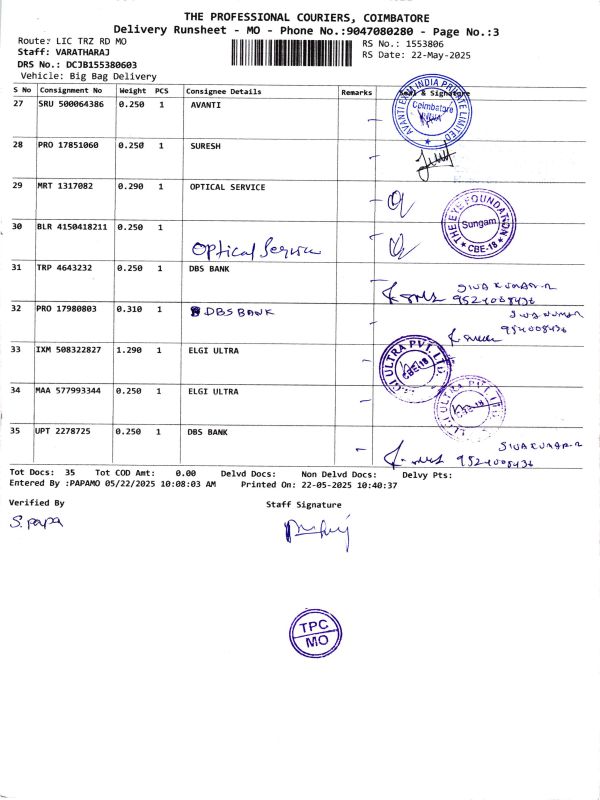 THE PROFESSIONAL COURIERS, COIMBATORE
Delivery Runsheet - MO - Phone No.:9047080280 - Page No.:3
Route: LIC TRZ RD MO
RS No.: 1553806
Staff: VARATHARAJ
RS Date: 22-May-2025
DRS No.: DCJB155380603
Vehicle: Big Bag Delivery
S No Consignment No Weight PCS Consignee Details Remarks Seal & Signature
27 SRU 500064386 0.250 1 AVANTI
AVANTI EXIM INDIA PRIVATE LIMITED
Coimbatore
INDIA
28 PRO 17851060 0.250 1 SURESH
29 MRT 1317082 0.290 1 OPTICAL SERVICE
THE EYE FOUNDATION
Sungam
CBE-18
30 BLR 4150418211 0.250 1
Optical Service
31 TRP 4643232 0.250 1 DBS BANK
SIVAKUMAR-R
9524008436
32 PRO 17980803 0.310 1 DBS BANK
SIVAKUMAR
33 IXM 508322827 1.290 1 ELGI ULTRA
ELGI ULTRA PVT. LTD.
CBE-18
34 MAA 577993344 0.250 1 ELGI ULTRA
ELGI ULTRA PVT. LTD.
35 UPT 2278725 0.250 1 DBS BANK
SIVAKUMAR-R
9524008436
Tot Docs: 35 Tot COD Amt: 0.00 Delvd Docs: Non Delvd Docs: Delvy Pts:
Entered By :PAPAMO 05/22/2025 10:08:03 AM Printed On: 22-05-2025 10:40:37
Verified By Staff Signature
S. papa
TPC
MO